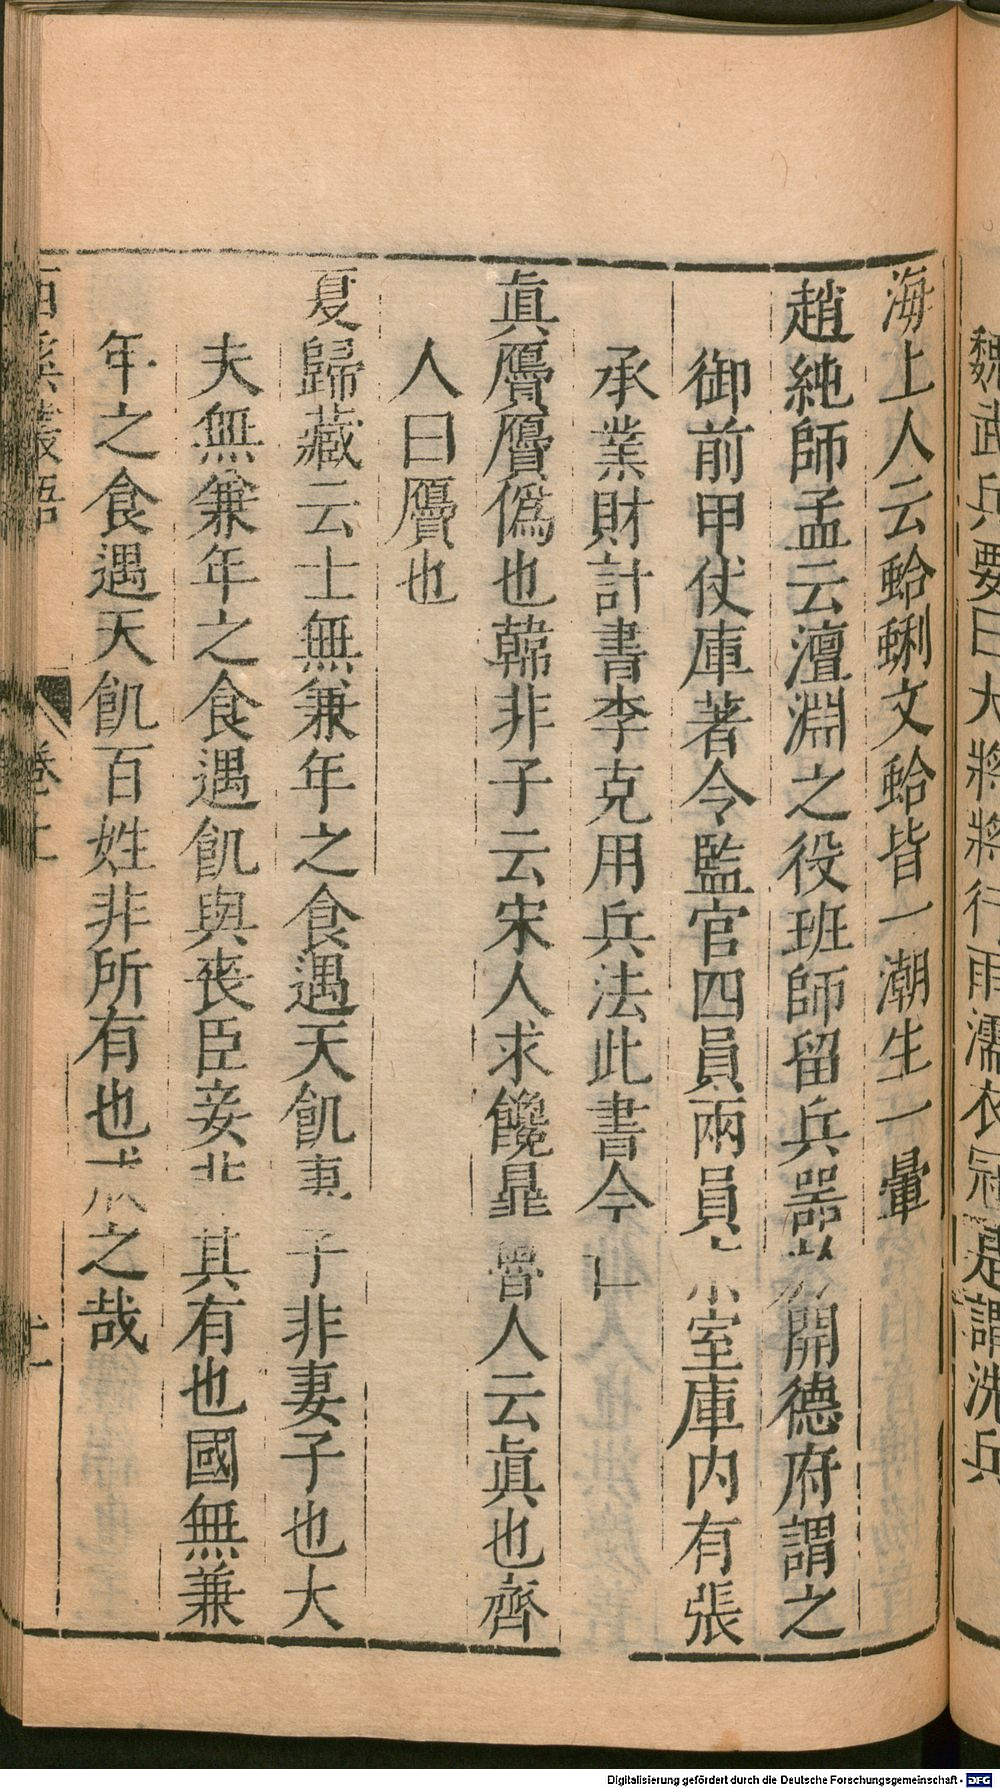 魏武兵要曰大將將行雨濡衣冠是謂洗兵
海上人云蛤蜊文蛤皆一潮生一暈
趙純師孟云澶淵之役班師留兵器於開德府謂之
御前甲仗庫著令監官四員兩員室庫内有張
承業財計書李克用兵法此書今
眞贗贗僞也韓非子云宋人求饞鼎魯人云眞也齊
人曰贗也
夏歸藏云士無兼年之食遇天飢妻子非妻子也大
夫無兼年之食遇飢與喪臣妾非其有也國無兼
年之食遇天飢百姓非所有也戒之哉
西溪叢語
卷上
Digitalisierung gefördert durch die Deutsche Forschungsgemeinschaft - DFG